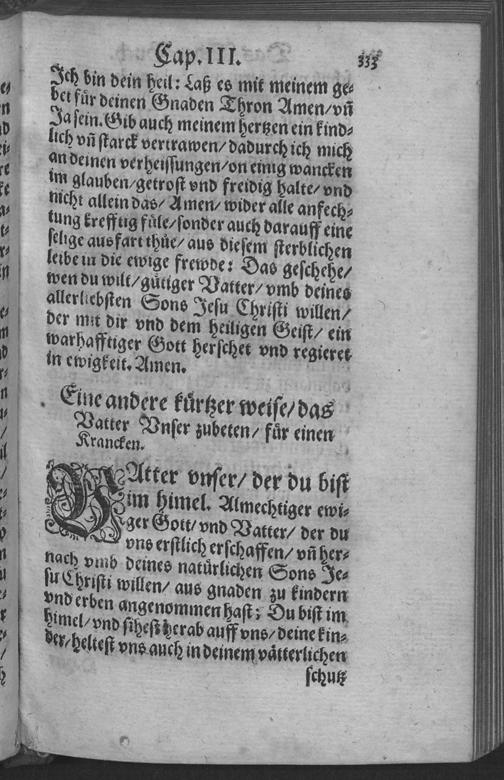 Cap. III. 333
Ich bin dein heil: Laß es mit meinem ge-
bet für deinen Gnaden Thron Amen/ vñ
Ja sein. Gib auch meinem hertzen ein kind-
lich vñ starck vertrawen/ dadurch ich mich
an deinen verheissungen/ on einig wancken
im glauben/ getrost vnd freidig halte/ vnd
nicht allein das/ Amen/ wider alle anfech-
tung krefftig füle/ sonder auch darauff eine
selige ausfart thüe/ aus diesem sterblichen
leibe in die ewige frewde: Das geschehe/
wen du wilt/ gütiger Vatter/ vmb deines
allerliebsten Sons Jesu Christi willen/
der mit dir vnd dem heiligen Geist/ ein
warhafftiger Gott herschet vnd regieret
in ewigkeit. Amen.
Eine andere kürtzer weise/ das
Vatter Vnser zubeten/ für einen
Krancken.
VAtter vnser/ der du bist
im himel. Almechtiger ewi-
ger Gott/ vnd Vatter/ der du
vns erstlich erschaffen/ vñ her-
nach vmb deines natürlichen Sons Je-
su Christi willen/ aus gnaden zu kindern
vnd erben angenommen hast: Du bist im
himel/ vnd sihest herab auff vns/ deine kin-
der/ heltest vns auch in deinem vätterlichen
schutz